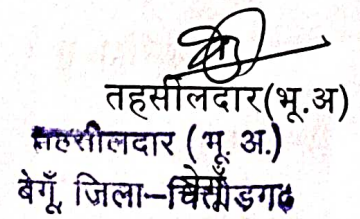 तहसीलदार(भू.अ)
तहसीलदार (भू. अ.)
बेगूँ, जिला-चित्तौड़गढ़